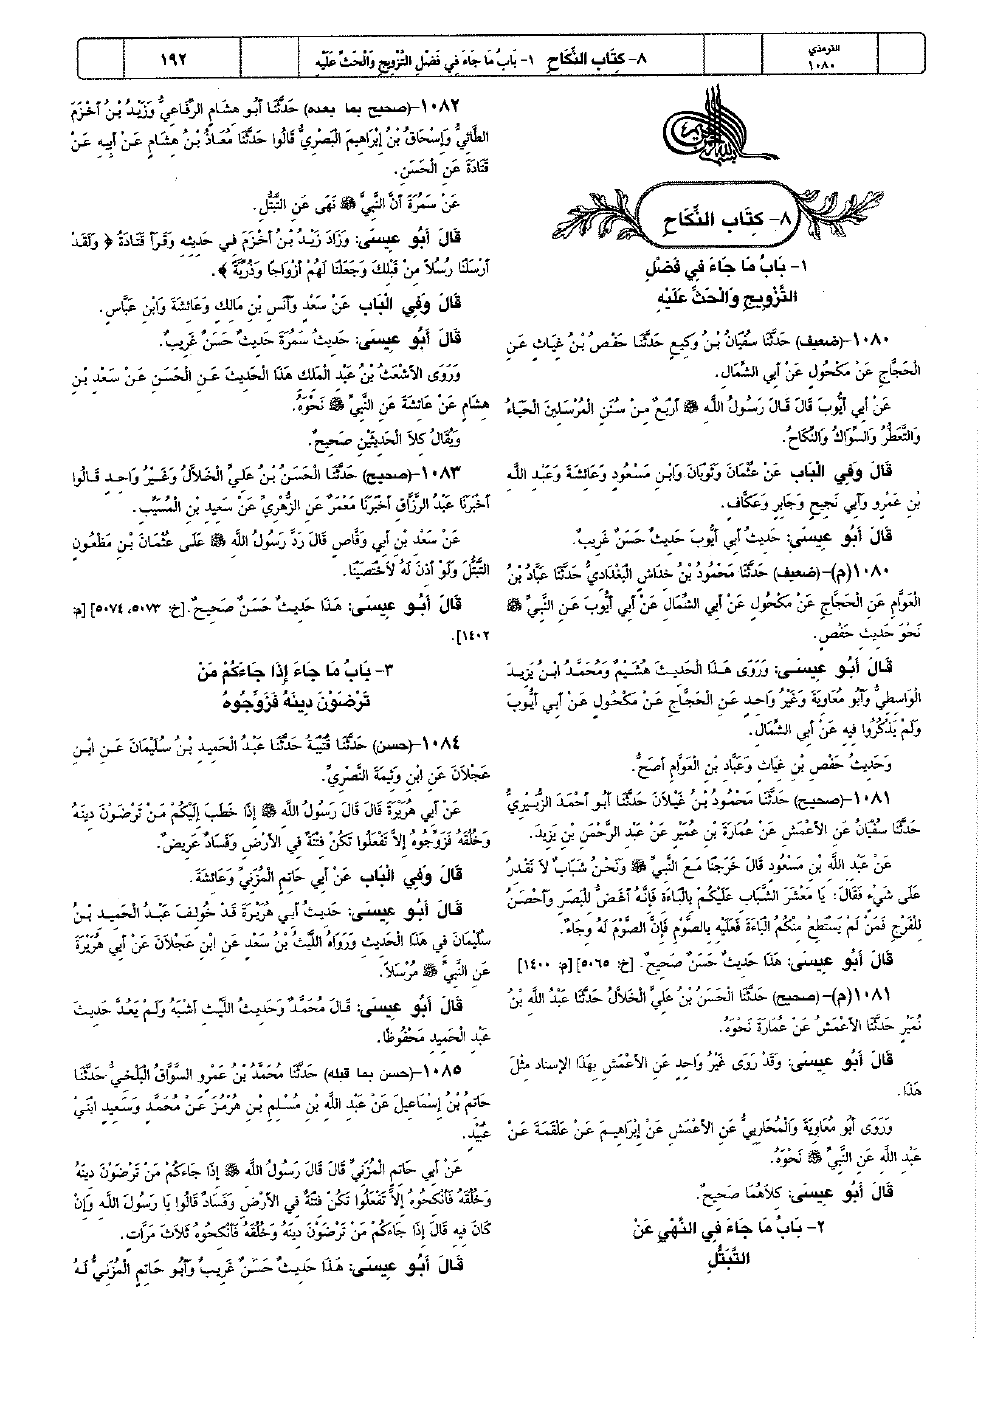 الترمذي
١٠٨٠
٨- كِتَاب النِّكَاح   ١- بَابُ مَا جَاءَ فِي فَضْلِ التَّزْوِيجِ وَالْحَثِّ عَلَيْهِ
١٩٢
٨- كِتَاب النِّكَاح
١- بَابُ مَا جَاءَ فِي فَضْلِ
التَّزْوِيجِ وَالْحَثِّ عَلَيْهِ
١٠٨٠-(ضعيف) حَدَّثَنَا سُفْيَانُ بْنُ وَكِيعٍ حَدَّثَنَا حَفْصُ بْنُ غِيَاثٍ عَنِ
الْحَجَّاجِ عَنْ مَكْحُولٍ عَنْ أَبِي الشِّمَالِ.
عَنْ أَبِي أَيُّوبَ قَالَ قَالَ رَسُولُ اللَّهِ ﷺ أَرْبَعٌ مِنْ سُنَنِ الْمُرْسَلِينَ الْحَيَاءُ
وَالتَّعَطُّرُ وَالسِّوَاكُ وَالنِّكَاحُ.
قَالَ وَفِي الْبَاب عَنْ عُثْمَانَ وَثَوْبَانَ وَابْنِ مَسْعُودٍ وَعَائِشَةَ وَعَبْدِ اللَّهِ
بْنِ عَمْرٍو وَأَبِي نَجِيحٍ وَجَابِرٍ وَعَكَّافٍ.
قَالَ أَبُو عِيسَى: حَدِيثُ أَبِي أَيُّوبَ حَدِيثٌ حَسَنٌ غَرِيبٌ.
١٠٨٠(م)-(ضعيف) حَدَّثَنَا مَحْمُودُ بْنُ خِدَاشٍ الْبَغْدَادِيُّ حَدَّثَنَا عَبَّادُ بْنُ
الْعَوَّامِ عَنِ الْحَجَّاجِ عَنْ مَكْحُولٍ عَنْ أَبِي الشِّمَالِ عَنْ أَبِي أَيُّوبَ عَنِ النَّبِيِّ ﷺ
نَحْوَ حَدِيثِ حَفْصٍ.
قَالَ أَبُو عِيسَى: وَرَوَى هَذَا الْحَدِيثَ هُشَيْمٌ وَمُحَمَّدُ ابْنُ يَزِيدَ
الْوَاسِطِيُّ وَأَبُو مُعَاوِيَةَ وَغَيْرُ وَاحِدٍ عَنِ الْحَجَّاجِ عَنْ مَكْحُولٍ عَنْ أَبِي أَيُّوبَ
وَلَمْ يَذْكُرُوا فِيهِ عَنْ أَبِي الشِّمَالِ.
وَحَدِيثُ حَفْصِ بْنِ غِيَاثٍ وَعَبَّادِ بْنِ الْعَوَّامِ أَصَحُّ.
١٠٨١-(صحيح) حَدَّثَنَا مَحْمُودُ بْنُ غَيْلَانَ حَدَّثَنَا أَبُو أَحْمَدَ الزُّبَيْرِيُّ
حَدَّثَنَا سُفْيَانُ عَنِ الأَعْمَشِ عَنْ عُمَارَةَ بْنِ عُمَيْرٍ عَنْ عَبْدِ الرَّحْمَنِ بْنِ يَزِيدَ.
عَنْ عَبْدِ اللَّهِ بْنِ مَسْعُودٍ قَالَ خَرَجْنَا مَعَ النَّبِيِّ ﷺ وَنَحْنُ شَبَابٌ لَا نَقْدِرُ
عَلَى شَيْءٍ فَقَالَ: يَا مَعْشَرَ الشَّبَابِ عَلَيْكُمْ بِالْبَاءَةِ فَإِنَّهُ أَغَضُّ لِلْبَصَرِ وَأَحْصَنُ
لِلْفَرْجِ فَمَنْ لَمْ يَسْتَطِعْ مِنْكُمُ الْبَاءَةَ فَعَلَيْهِ بِالصَّوْمِ فَإِنَّ الصَّوْمَ لَهُ وِجَاءٌ.
قَالَ أَبُو عِيسَى: هَذَا حَدِيثٌ حَسَنٌ صَحِيحٌ. [خ: ٥٠٦٥] [م: ١٤٠٠]
١٠٨١(م)-(صحيح) حَدَّثَنَا الْحَسَنُ بْنُ عَلِيٍّ الْخَلَّالُ حَدَّثَنَا عَبْدُ اللَّهِ بْنُ
نُمَيْرٍ حَدَّثَنَا الأَعْمَشُ عَنْ عُمَارَةَ نَحْوَهُ.
قَالَ أَبُو عِيسَى: وَقَدْ رَوَى غَيْرُ وَاحِدٍ عَنِ الأَعْمَشِ بِهَذَا الإِسْنَادِ مِثْلَ
هَذَا.
وَرَوَى أَبُو مُعَاوِيَةَ وَالْمُحَارِبِيُّ عَنِ الأَعْمَشِ عَنْ إِبْرَاهِيمَ عَنْ عَلْقَمَةَ عَنْ
عَبْدِ اللَّهِ عَنِ النَّبِيِّ ﷺ نَحْوَهُ.
قَالَ أَبُو عِيسَى: كِلَاهُمَا صَحِيحٌ.
٢- بَابُ مَا جَاءَ فِي النَّهْيِ عَنْ
التَّبَتُّلِ
١٠٨٢-(صحيح بما بعده) حَدَّثَنَا أَبُو هِشَامٍ الرِّفَاعِيُّ وَزَيْدُ بْنُ أَخْزَمَ
الطَّائِيُّ وَإِسْحَاقُ بْنُ إِبْرَاهِيمَ الْبَصْرِيُّ قَالُوا حَدَّثَنَا مُعَاذُ بْنُ هِشَامٍ عَنْ أَبِيهِ عَنْ
قَتَادَةَ عَنِ الْحَسَنِ.
عَنْ سَمُرَةَ أَنَّ النَّبِيَّ ﷺ نَهَى عَنِ التَّبَتُّلِ.
قَالَ أَبُو عِيسَى: وَزَادَ زَيْدُ بْنُ أَخْزَمَ فِي حَدِيثِهِ وَقَرَأَ قَتَادَةُ ﴿ وَلَقَدْ
أَرْسَلْنَا رُسُلاً مِنْ قَبْلِكَ وَجَعَلْنَا لَهُمْ أَزْوَاجًا وَذُرِّيَّةً ﴾.
قَالَ وَفِي الْبَاب عَنْ سَعْدٍ وَأَنَسِ بْنِ مَالِكٍ وَعَائِشَةَ وَابْنِ عَبَّاسٍ.
قَالَ أَبُو عِيسَى: حَدِيثُ سَمُرَةَ حَدِيثٌ حَسَنٌ غَرِيبٌ.
وَرَوَى الأَشْعَثُ بْنُ عَبْدِ الْمَلِكِ هَذَا الْحَدِيثَ عَنِ الْحَسَنِ عَنْ سَعْدِ بْنِ
هِشَامٍ عَنْ عَائِشَةَ عَنِ النَّبِيِّ ﷺ نَحْوَهُ.
وَيُقَالُ كِلَا الْحَدِيثَيْنِ صَحِيحٌ.
١٠٨٣-(صحيح) حَدَّثَنَا الْحَسَنُ بْنُ عَلِيٍّ الْخَلَّالُ وَغَيْرُ وَاحِدٍ قَالُوا
أَخْبَرَنَا عَبْدُ الرَّزَّاقِ أَخْبَرَنَا مَعْمَرٌ عَنِ الزُّهْرِيِّ عَنْ سَعِيدِ بْنِ الْمُسَيِّبِ.
عَنْ سَعْدِ بْنِ أَبِي وَقَّاصٍ قَالَ رَدَّ رَسُولُ اللَّهِ ﷺ عَلَى عُثْمَانَ بْنِ مَظْعُونٍ
التَّبَتُّلَ وَلَوْ أَذِنَ لَهُ لَاخْتَصَيْنَا.
قَالَ أَبُو عِيسَى: هَذَا حَدِيثٌ حَسَنٌ صَحِيحٌ. [خ: ٥٠٧٣، ٥٠٧٤] [م:
١٤٠٢].
٣- بَابُ مَا جَاءَ إِذَا جَاءَكُمْ مَنْ
تَرْضَوْنَ دِينَهُ فَزَوِّجُوهُ
١٠٨٤-(حسن) حَدَّثَنَا قُتَيْبَةُ حَدَّثَنَا عَبْدُ الْحَمِيدِ بْنُ سُلَيْمَانَ عَنِ ابْنِ
عَجْلَانَ عَنِ ابْنِ وَثِيمَةَ النَّصْرِيِّ.
عَنْ أَبِي هُرَيْرَةَ قَالَ قَالَ رَسُولُ اللَّهِ ﷺ إِذَا خَطَبَ إِلَيْكُمْ مَنْ تَرْضَوْنَ دِينَهُ
وَخُلُقَهُ فَزَوِّجُوهُ إِلَّا تَفْعَلُوا تَكُنْ فِتْنَةٌ فِي الأَرْضِ وَفَسَادٌ عَرِيضٌ.
قَالَ وَفِي الْبَاب عَنْ أَبِي حَاتِمٍ الْمُزَنِيِّ وَعَائِشَةَ.
قَالَ أَبُو عِيسَى: حَدِيثُ أَبِي هُرَيْرَةَ قَدْ خُولِفَ عَبْدُ الْحَمِيدِ بْنُ
سُلَيْمَانَ فِي هَذَا الْحَدِيثِ وَرَوَاهُ اللَّيْثُ بْنُ سَعْدٍ عَنِ ابْنِ عَجْلَانَ عَنْ أَبِي هُرَيْرَةَ
عَنِ النَّبِيِّ ﷺ مُرْسَلاً.
قَالَ أَبُو عِيسَى: قَالَ مُحَمَّدٌ وَحَدِيثُ اللَّيْثِ أَشْبَهُ وَلَمْ يَعُدَّ حَدِيثَ
عَبْدِ الْحَمِيدِ مَحْفُوظًا.
١٠٨٥-(حسن بما قبله) حَدَّثَنَا مُحَمَّدُ بْنُ عَمْرٍو السَّوَّاقُ الْبَلْخِيُّ حَدَّثَنَا
حَاتِمُ بْنُ إِسْمَاعِيلَ عَنْ عَبْدِ اللَّهِ بْنِ مُسْلِمِ بْنِ هُرْمُزَ عَنْ مُحَمَّدٍ وَسَعِيدٍ ابْنَيْ
عُبَيْدٍ.
عَنْ أَبِي حَاتِمٍ الْمُزَنِيِّ قَالَ قَالَ رَسُولُ اللَّهِ ﷺ إِذَا جَاءَكُمْ مَنْ تَرْضَوْنَ دِينَهُ
وَخُلُقَهُ فَأَنْكِحُوهُ إِلَّا تَفْعَلُوا تَكُنْ فِتْنَةٌ فِي الأَرْضِ وَفَسَادٌ قَالُوا يَا رَسُولَ اللَّهِ وَإِنْ
كَانَ فِيهِ قَالَ إِذَا جَاءَكُمْ مَنْ تَرْضَوْنَ دِينَهُ وَخُلُقَهُ فَأَنْكِحُوهُ ثَلَاثَ مَرَّاتٍ.
قَالَ أَبُو عِيسَى: هَذَا حَدِيثٌ حَسَنٌ غَرِيبٌ وَأَبُو حَاتِمٍ الْمُزَنِيُّ لَهُ